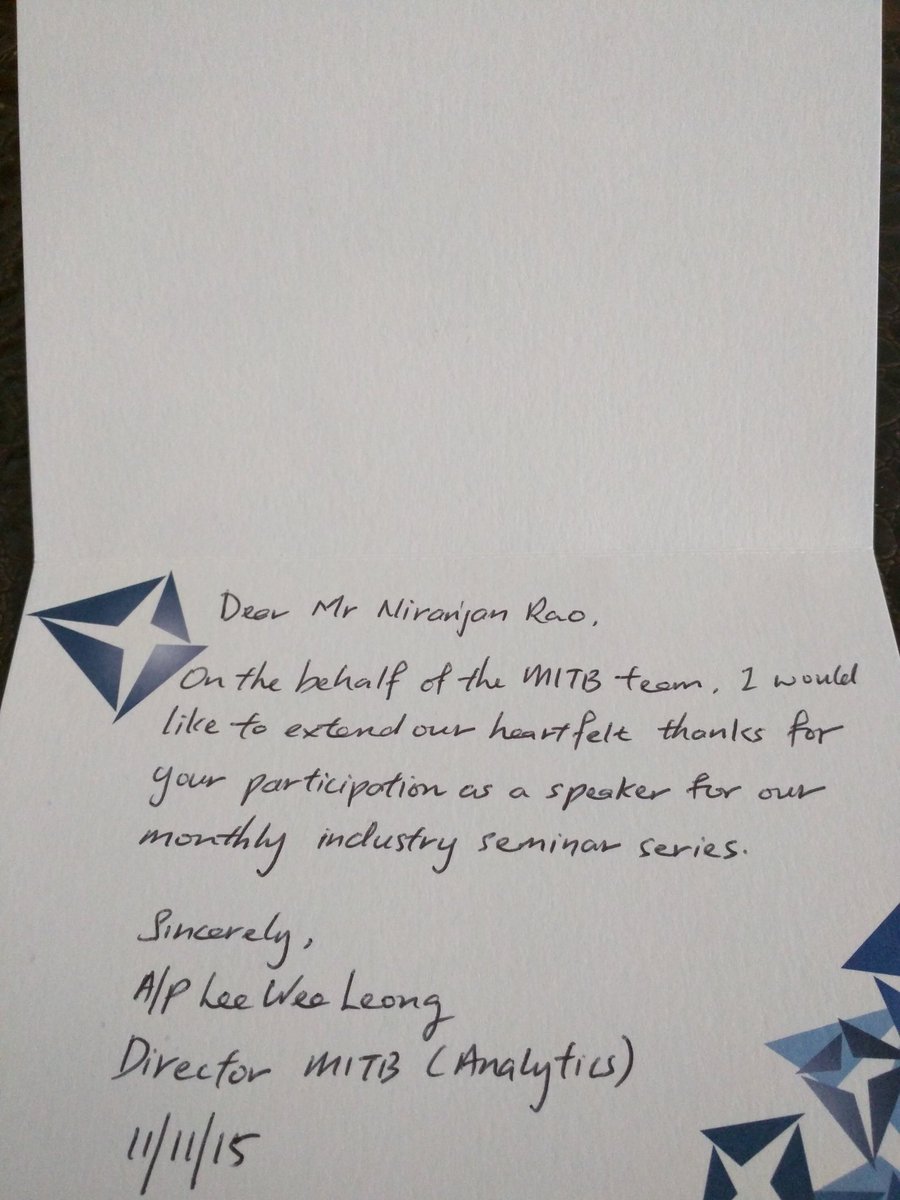 Dear Mr Niranjan Rao,
On the behalf of the MITB team, I would
like to extend our heartfelt thanks for
your participation as a speaker for our
monthly industry seminar series.
Sincerely,
A/P Lee Wee Leong
Director MITB (Analytics)
11/11/15